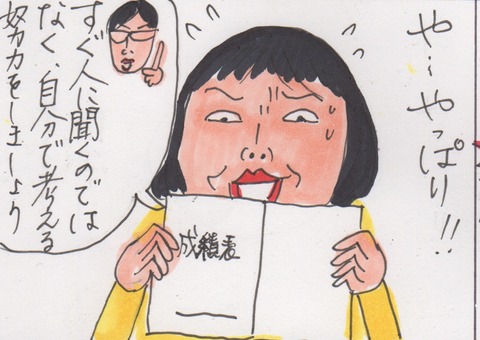 や…やっぱり!!
成績表
すぐ人に聞くのでは
なく、自分で考える
努力をしましょう